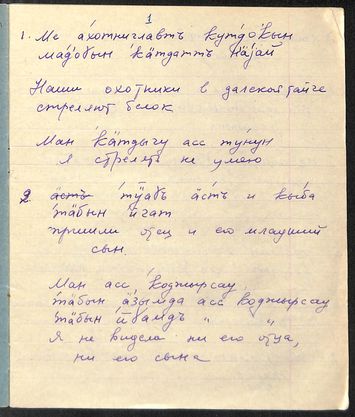 1
1. Ме а́хотниглавтъ кута́о́кын
мадо́вын ка́тдаттъ На́јай
Наши охотники в далской тайге
стреляют белок
Ман ка́тдыгу асс ту́нун
я стрелять не умею
2 а́стъ т́ӱавъ а̄стъ и кы́ба
та́бын и́гат
пришли отец и его младший
сын.
Ман асс ко́джырсау
та́бын а́зымда асс ко́джырсау
та́бын и́вамдъ " "
Я не видела ни его отца,
ни его сына